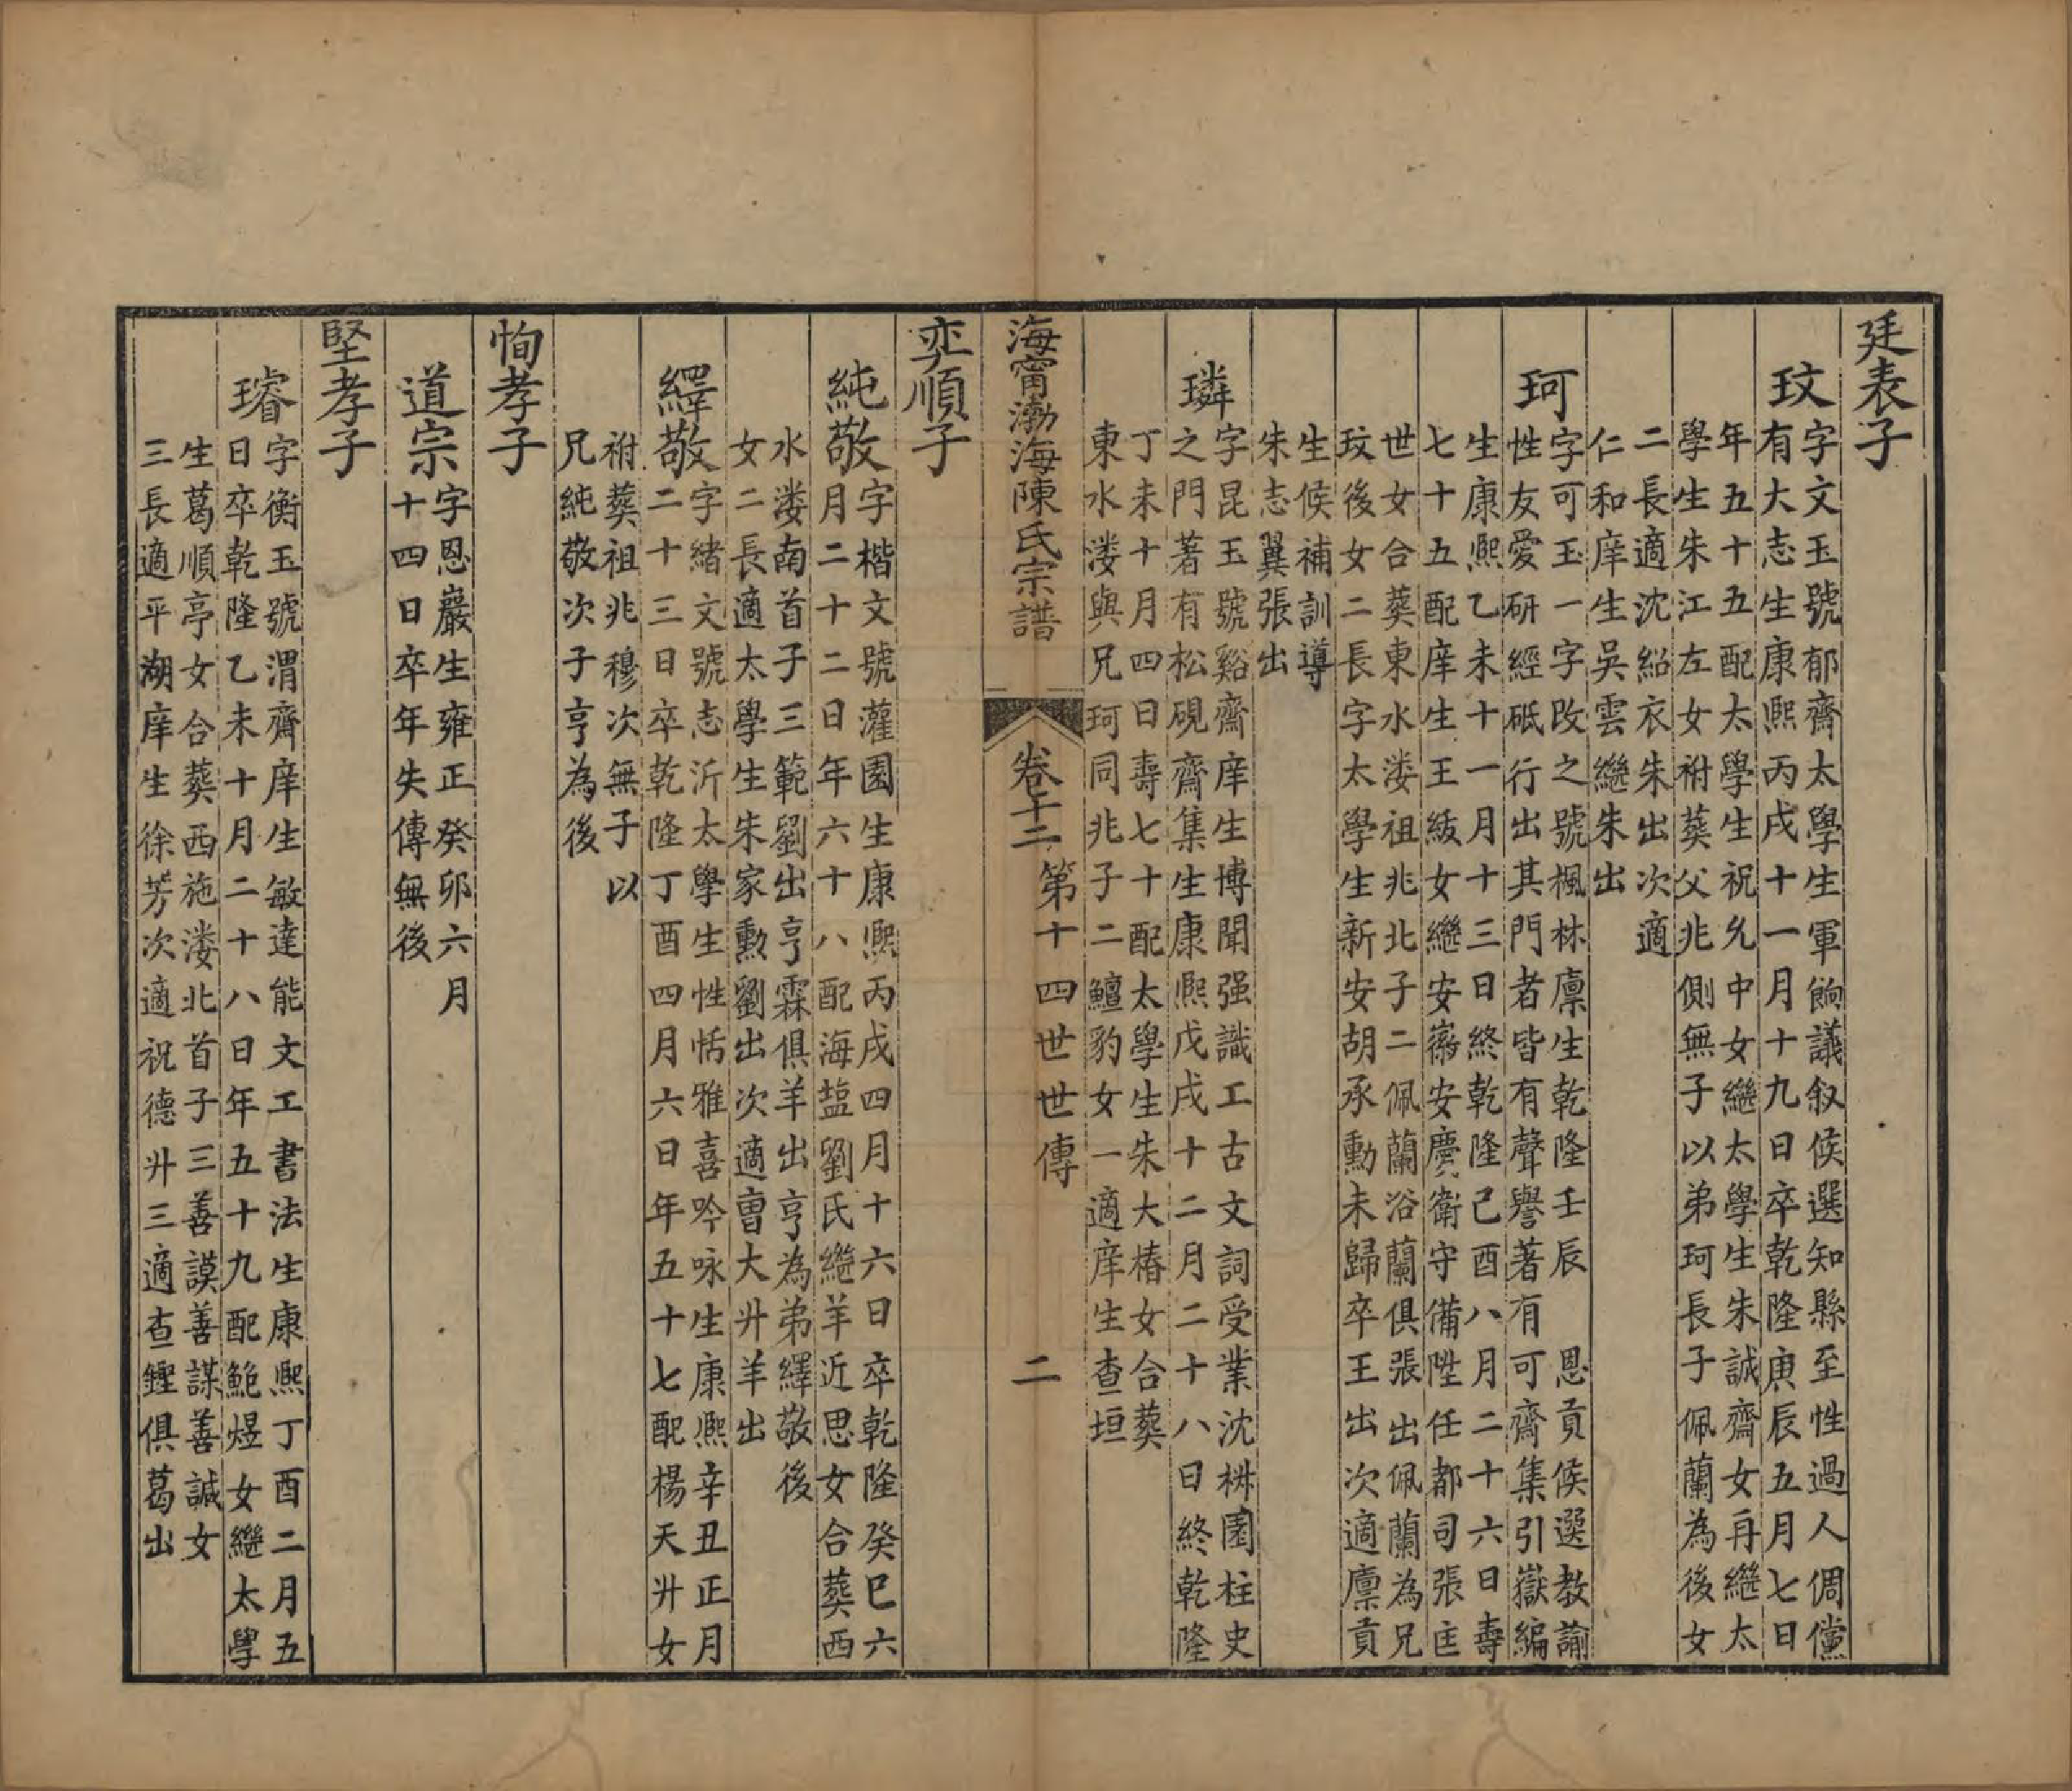 廷表子
玟
字文玉號郁齋太學生軍餉議叙候選知縣至性過人倜儻
有大志生康熙丙戌十一月十九日卒乾隆庚辰五月七日
年五十五配太學生祝允中女繼太學生朱誠齋女再繼太
學生朱江左女祔葬父兆側無子以弟珂長子佩蘭為後女
二長適沈紹衣朱出次適
仁和庠生吳雲繼朱出
珂
字可玉一字改之號楓林廪生乾隆壬辰 恩貢候選教諭
性友愛研經砥行出其門者皆有聲譽著有可齋集引嶽編
生康熙乙未十一月十三日終乾隆己酉八月二十六日壽
七十五配庠生王級女繼安徽安慶衛守備陞任都司張匡
世女合葬東水漊祖兆北子二佩蘭浴蘭俱張出佩蘭為兄
玟後女二長字太學生新安胡承勳未歸卒王出次適廪貢
生候補訓導
朱志翼張出
璘
字昆玉號谿齋庠生博聞强識工古文詞受業沈椕園柱史
之門著有松硯齋集生康熙戊戌十二月二十八日終乾隆
丁未十月四日壽七十配太學生朱大椿女合葬
東水漊與兄珂同兆子二鱣豹女一適庠生查垣
海甯渤海陳氏宗譜
卷十二 第十四世世傳
二
奕順子
純敬
字楷文號灌園生康熙丙戌四月十六日卒乾隆癸巳六
月二十二日年六十八配海塩劉氏繼羊近思女合葬西
水漊南首子三範劉出亨霖俱羊出亨為弟繹敬後
女二長適太學生朱家勳劉出次適曹大升羊出
繹敬
字緒文號志沂太學生性恬雅喜吟咏生康熙辛丑正月
二十三日卒乾隆丁酉四月六日年五十七配楊天升女
祔葬祖兆穆次無子以
兄純敬次子亨為後
恂孝子
道宗
字恩巖生雍正癸卯六月
十四日卒年失傳無後
堅孝子
璿
字衡玉號渭齋庠生敏達能文工書法生康熙丁酉二月五
日卒乾隆乙未十月二十八日年五十九配鮑煜女繼太學
生葛順亭女合葬西施漊北首子三善謨善謀善誠女
三長適平湖庠生徐芳次適祝德升三適查鏗俱葛出